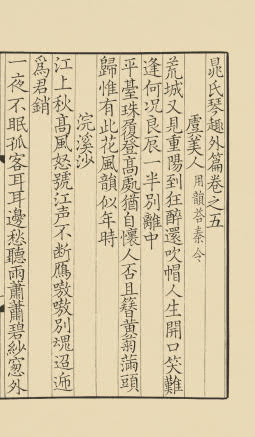 晁氏琴趣外篇卷之五
虞美人 用韻荅秦令
荒城又見重陽到狂醉還吹帽人生開口笑難
逢何况良辰一半別離中
平臺珠履登高處猶自懷人否且簪黃菊滿頭
歸惟有此花風韻似年時
浣溪沙
江上秋高風怒號江声不断鴈嗷嗷別魂迢逓
為君銷
一夜不眠孤客耳耳邊愁聽雨蕭蕭碧紗窓外